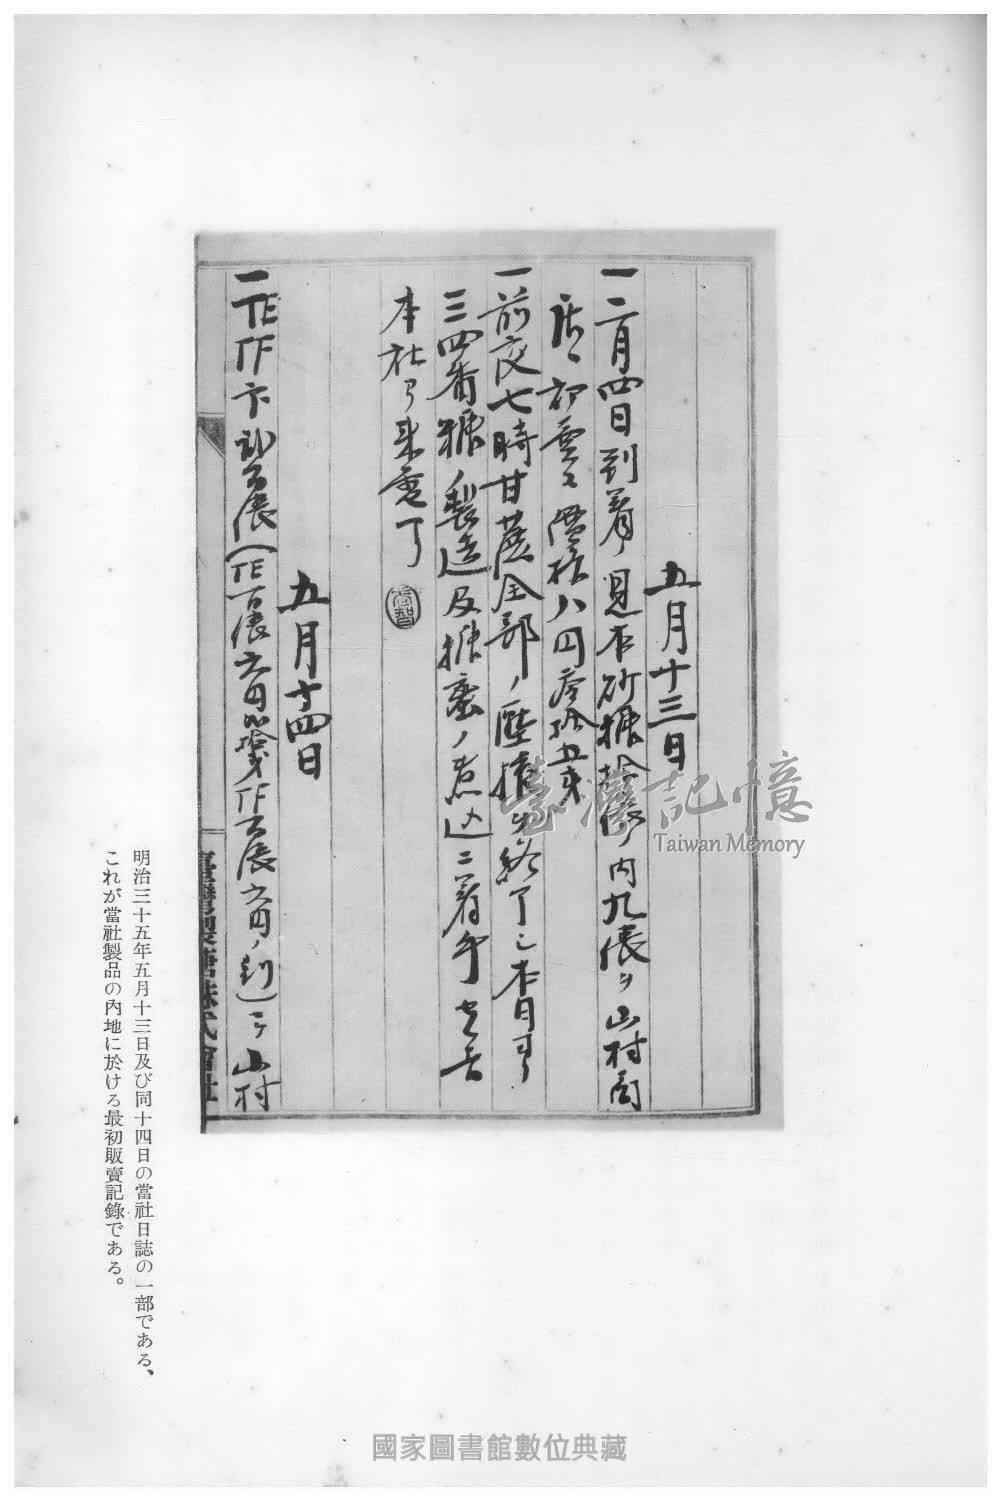 五月十三日
一 二月四日到着ノ見本砂糖拾俵ノ内九俵ヲ山村商
店ニ 賣 價格八円 拾五錢
一 前夜七時甘蔗全部ノ壓搾ヲ終了シ本日ヨリ
三四番糖ノ製造及糖蜜ノ煮込ニ着手セル旨
本社ヨリ来電了
五月十四日
一 TE TF 六 俵(TE百俵六円 錢TF 俵六円 )ヲ山村
臺灣製糖株式會社
明治三十五年五月十三日及び同十四日の當社日誌の一部である、
これが當社製品の內地に於ける最初販賣記錄である。
臺灣記憶
Taiwan Memory
國家圖書館數位典藏